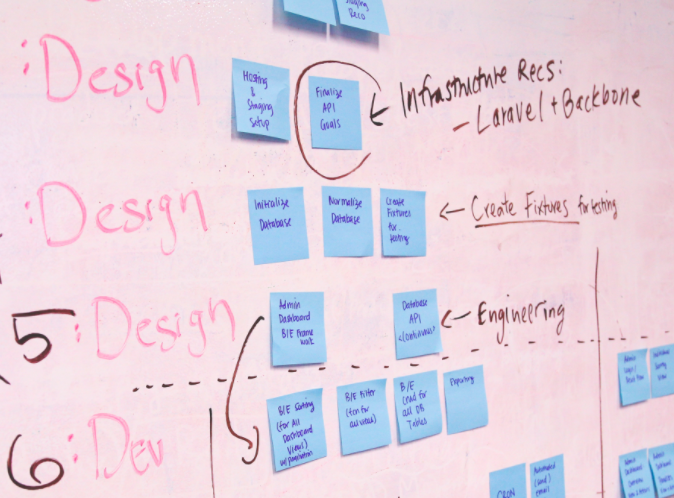 Staging
Recs
:Design
Hosting
&
Staging
Setup
Finalize
API
Goals
← Infrastructure Recs:
- Laravel + Backbone
:Design
Initialize
Database
Normalize
Database
Create
Fixtures
for
testing
← Create Fixtures for testing
5:Design
Admin
Dashboard
B/E Frame
work
Database
API
<continuous>
← Engineering
6:Dev
B/E Sorting
(for All
Dashboard
Views)
w/pagination
B/E Filter
for all
B/E
for
all DB
Tables
Reporting
Admin
View
CRON
Automated
(send)
email
Admin
Dashboard